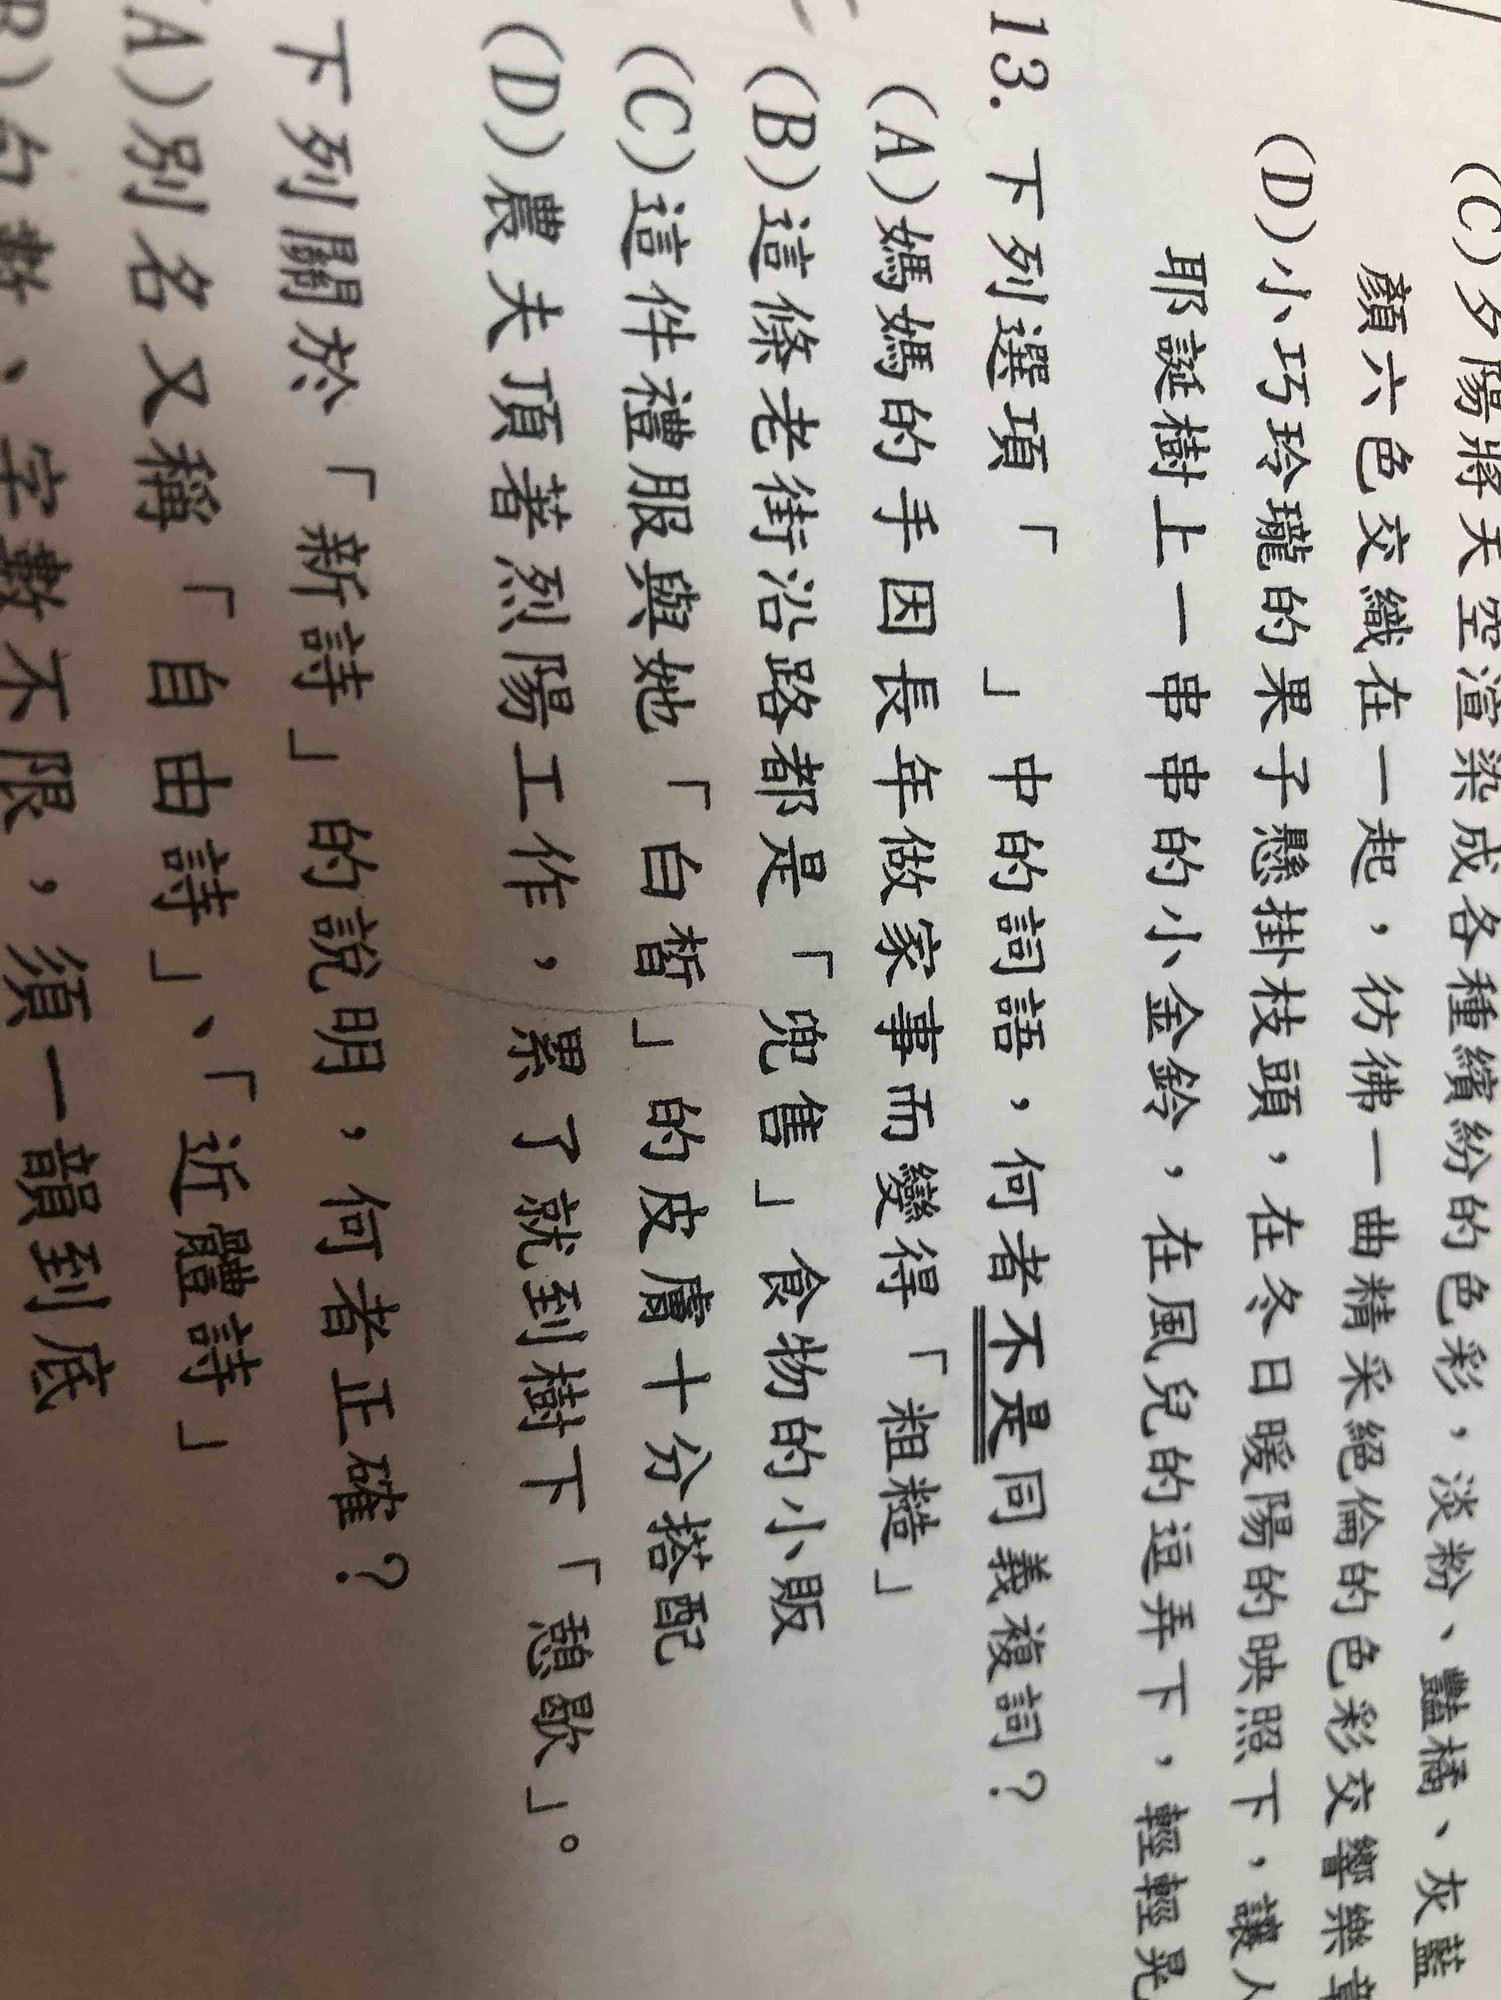 (C)夕陽將天空渲染成各種繽紛的色彩，淡粉、豔橘、灰藍
顏六色交織在一起，彷彿一曲精采絕倫的色彩交響樂章
(D)小巧玲瓏的果子懸掛枝頭，在冬日暖陽的映照下，讓人
耶誕樹上一串串的小金鈴，在風兒的逗弄下，輕輕晃
13. 下列選項「　　」中的詞語，何者不是同義複詞？
(A)媽媽的手因長年做家事而變得「粗糙」
(B)這條老街沿路都是「兜售」食物的小販
(C)這件禮服與她「白皙」的皮膚十分搭配
(D)農夫頂著烈陽工作，累了就到樹下「憩歇」。
下列關於「新詩」的說明，何者正確？
A)別名又稱「自由詩」、「近體詩」
B)句數、字數不限，須一韻到底